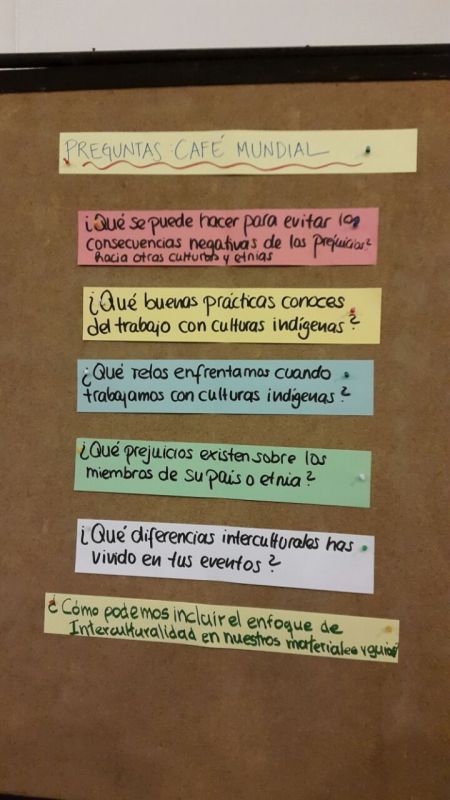 PREGUNTAS CAFÉ MUNDIAL
¿Qué se puede hacer para evitar las
consecuencias negativas de los prejuicios?
hacia otras culturas y etnias
¿Qué buenas prácticas conoces
del trabajo con culturas indígenas?
¿Qué retos enfrentamos cuando
trabajamos con culturas indígenas?
¿Qué prejuicios existen sobre los
miembros de su país o etnia?
¿Qué diferencias interculturales has
vivido en tus eventos?
¿Cómo podemos incluir el enfoque de
Interculturalidad en nuestros materiales y guías?